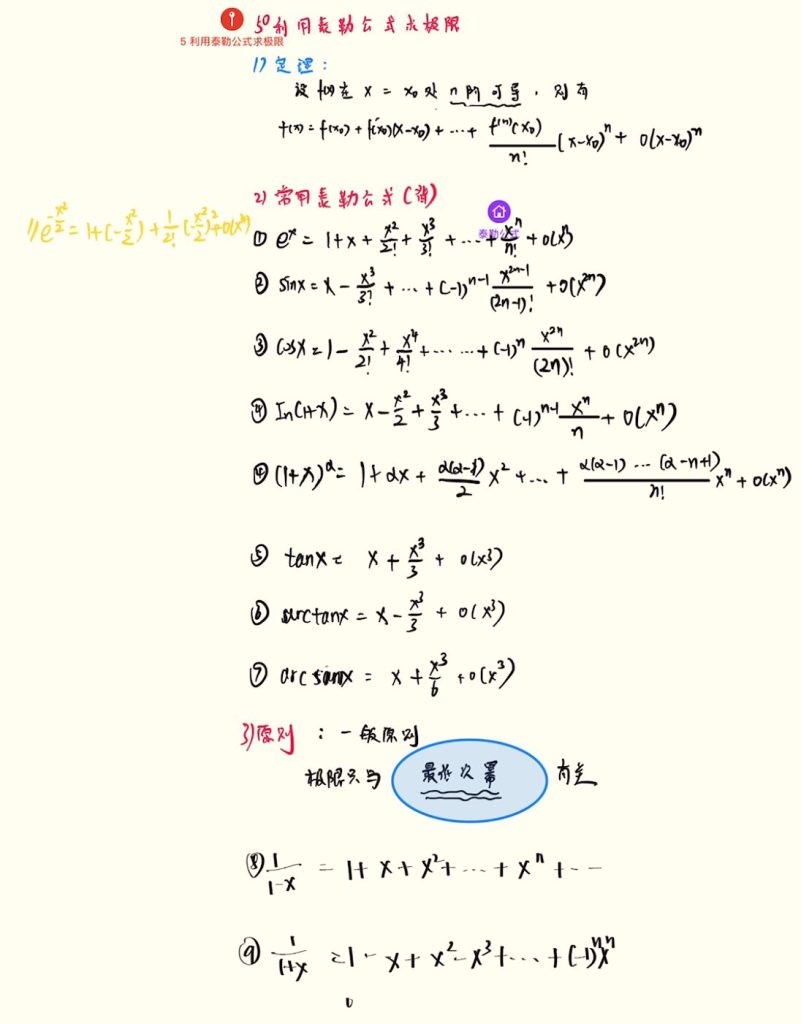 5° 利用泰勒公式求极限
5 利用泰勒公式求极限
1) 定理：
设 f(x) 在 x = x₀ 处 n 阶可导，则有
f(x) = f(x₀) + f'(x₀)(x-x₀) + ··· + f⁽ⁿ⁾(x₀)/n! (x-x₀)ⁿ + o(x-x₀)ⁿ
2) 常用泰勒公式(背)
泰勒公式
1) e^(-x²/2) = 1+(-x²/2)+1/2! (-x²/2)²+o(x⁴)
① eˣ = 1+x+x²/2!+x³/3!+···+xⁿ/n!+o(xⁿ)
② sinx = x - x³/3! + ··· + (-1)ⁿ⁻¹ x²ⁿ⁻¹/(2n-1)! + o(x²ⁿ)
③ cosx = 1 - x²/2! + x⁴/4! + ··· ··· + (-1)ⁿ x²ⁿ/(2n)! + o(x²ⁿ)
④ ln(1+x) = x - x²/2 + x³/3 + ··· + (-1)ⁿ⁻¹ xⁿ/n + o(xⁿ)
④ (1+x)^α = 1+αx + α(α-1)/2 x² + ··· + α(α-1) ··· (α-n+1)/n! xⁿ + o(xⁿ)
⑤ tanx = x + x³/3 + o(x³)
⑥ arctanx = x - x³/3 + o(x³)
⑦ arcsinx = x + x³/6 + o(x³)
3) 原则 ： 一般原则
极限只与 最低次幂 有关
⑧ 1/(1-x) = 1+x+x²+···+xⁿ+···
⑨ 1/(1+x) = 1-x+x²-x³+···+(-1)ⁿxⁿ